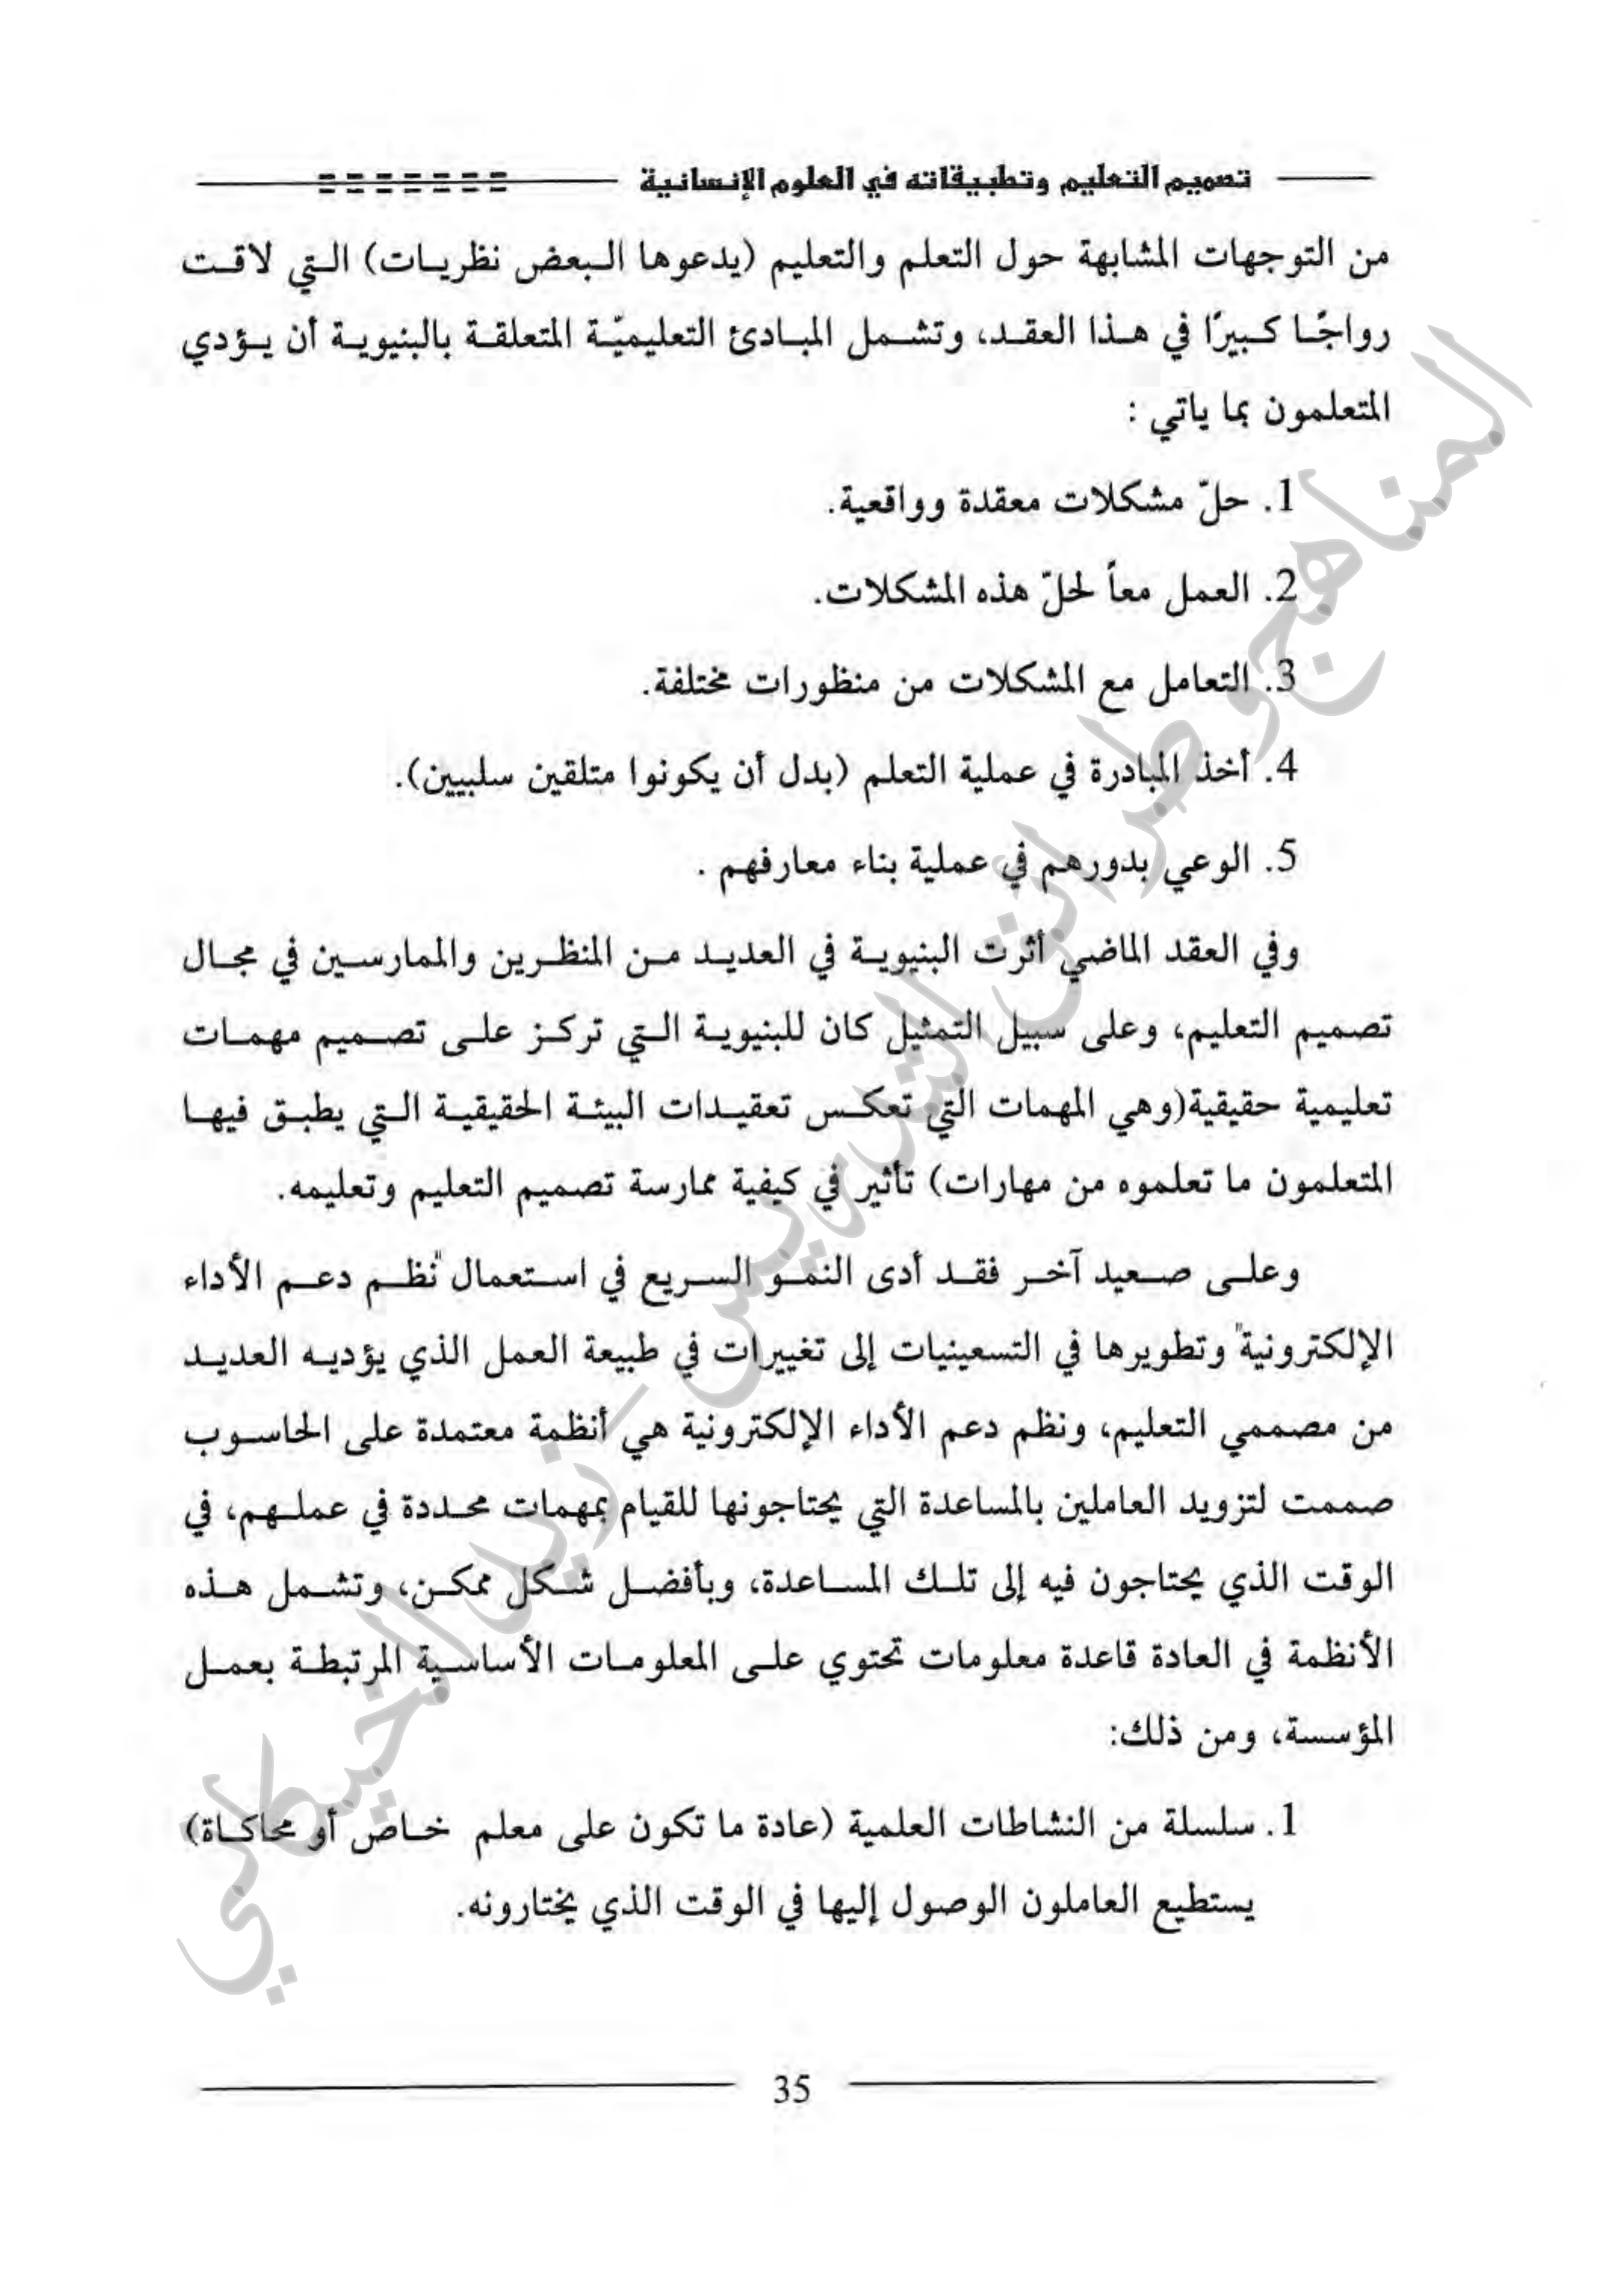 تصميم التعليم وتطبيقاته في العلوم الإنسانية
من التوجهات المشابهة حول التعلم والتعليم (يدعوها البعض نظريات) التي لاقت
رواجًا كبيرًا في هذا العقد، وتشمل المبادئ التعليميّة المتعلقة بالبنيوية أن يؤدي
المتعلمون بما ياتي :
1. حلّ مشكلات معقدة وواقعية.
2. العمل معاً لحلّ هذه المشكلات.
3. التعامل مع المشكلات من منظورات مختلفة.
4. أخذ المبادرة في عملية التعلم (بدل أن يكونوا متلقين سلبيين).
5. الوعي بدورهم في عملية بناء معارفهم .
وفي العقد الماضي أثرت البنيوية في العديد من المنظرين والممارسين في مجال
تصميم التعليم، وعلى سبيل التمثيل كان للبنيوية التي تركز على تصميم مهمات
تعليمية حقيقية(وهي المهمات التي تعكس تعقيدات البيئة الحقيقية التي يطبق فيها
المتعلمون ما تعلموه من مهارات) تأثير في كيفية ممارسة تصميم التعليم وتعليمه.
وعلى صعيد آخر فقد أدى النمو السريع في استعمال "نظم دعم الأداء
الإلكترونية" وتطويرها في التسعينيات إلى تغييرات في طبيعة العمل الذي يؤديه العديد
من مصممي التعليم، ونظم دعم الأداء الإلكترونية هي أنظمة معتمدة على الحاسوب
صممت لتزويد العاملين بالمساعدة التي يحتاجونها للقيام بمهمات محددة في عملهم، في
الوقت الذي يحتاجون فيه إلى تلك المساعدة، وبأفضل شكل ممكن، وتشمل هذه
الأنظمة في العادة قاعدة معلومات تحتوي على المعلومات الأساسية المرتبطة بعمل
المؤسسة، ومن ذلك:
1. سلسلة من النشاطات العلمية (عادة ما تكون على معلم خاص أو محاكاة)
يستطيع العاملون الوصول إليها في الوقت الذي يختارونه.
35
المناهج وطرائق التدريس - زيد الخيكاني